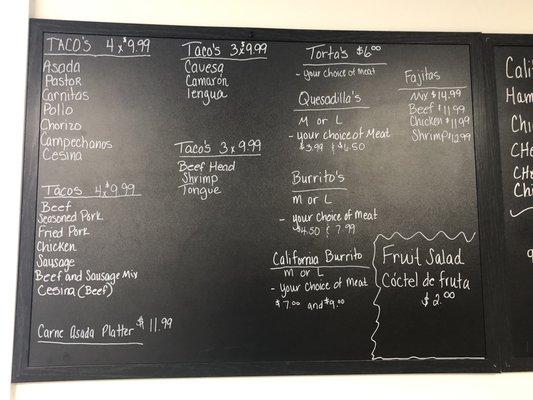 TACO'S 4x$9.99
Asada
Pastor
Carnitas
Pollo
Chorizo
Campechanos
Cesina
Tacos 4x$9.99
Beef
Seasoned Pork
Fried Pork
Chicken
Sausage
Beef and Sausage Mix
Cesina (Beef)
Carne Asada Platter $11.99
Taco's 3x$9.99
Cavesa
Camarón
lengua
Taco's 3x9.99
Beef Head
Shrimp
Tongue
Torta's $6.00
- your choice of meat
Quesadilla's
M or L
- your choice of Meat
$3.99 & $6.50
Burrito's
M or L
- your choice of meat
$4.50 & 7.99
California Burrito
M or L
- your choice of meat
$7.00 and $9.00
Fajitas
Mix $14.99
Beef $11.99
Chicken $11.99
Shrimp $12.99
Fruit Salad
Cóctel de fruta
$2.00
Cali
Ham
Chi
CHe
CHe
Chi